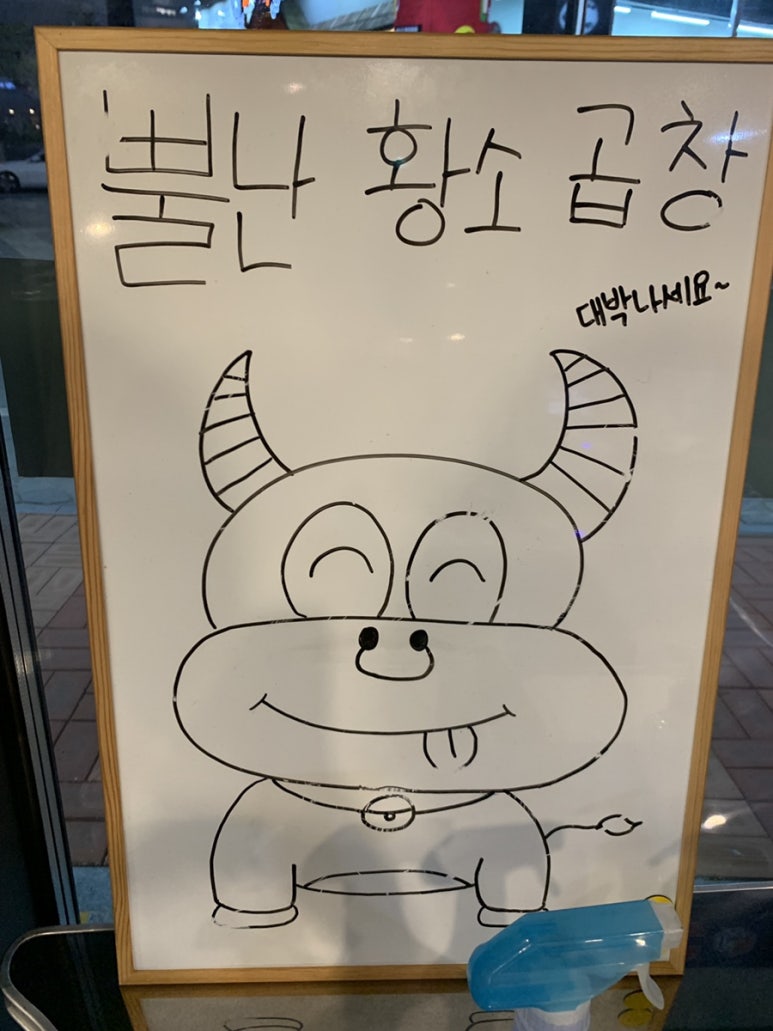 불난 황소 곱창
대박나세요~